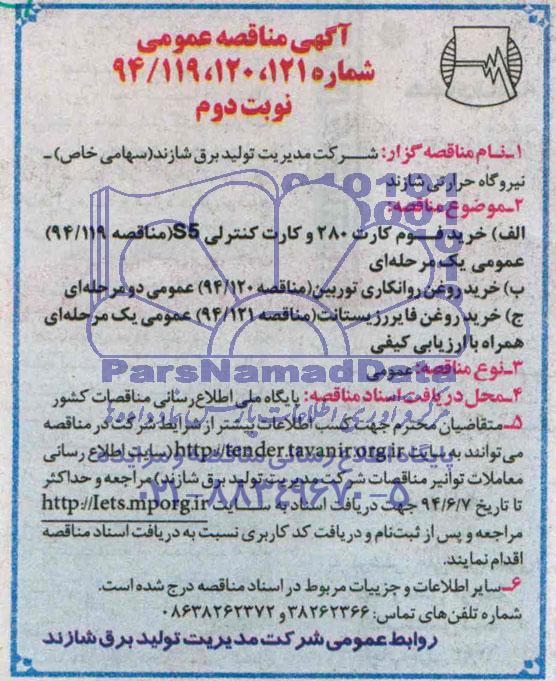 آگهی مناقصه عمومی
شماره ۱۲۱، ۱۲۰، ۹۴/۱۱۹
نوبت دوم
۱ـ نام مناقصه گزار: شرکت مدیریت تولید برق شازند(سهامی خاص) ـ
نیروگاه حرارتی شازند
۲ـ موضوع مناقصه:
الف) خرید فوم کارت ۲۸۰ و کارت کنترلی S5(مناقصه ۹۴/۱۱۹)
عمومی یک مرحله‌ای
ب) خرید روغن روانکاری توربین(مناقصه ۹۴/۱۲۰) عمومی دو مرحله‌ای
ج) خرید روغن فایررزیستانت(مناقصه ۹۴/۱۲۱) عمومی یک مرحله‌ای
همراه با ارزیابی کیفی
ParsNamadData
۳ـ نوع مناقصه: عمومی
۴ـ محل دریافت اسناد مناقصه: پایگاه ملی اطلاع رسانی مناقصات کشور
۵ـ متقاضیان محترم جهت کسب اطلاعات بیشتر از شرایط شرکت در مناقصه
می‌توانند به سایت http://tender.tavanir.org.ir (سایت اطلاع رسانی
پایگاه اطلاع رسانی مناقصه و مزایده
معاملات توانیر مناقصات شرکت مدیریت تولید برق شازند) مراجعه و حداکثر
۰۲۱-۸۸۳۴۹۶۷۰-۵
تا تاریخ ۹۴/۶/۷ جهت دریافت اسناد به سایت http://Iets.mporg.ir
مراجعه و پس از ثبت‌نام و دریافت کد کاربری نسبت به دریافت اسناد مناقصه
اقدام نمایند.
۶ـ سایر اطلاعات و جزییات مربوط در اسناد مناقصه درج شده است.
شماره تلفن‌های تماس: ۳۸۲۶۲۳۶۶ و ۰۸۶۳۸۲۶۲۳۷۲
روابط عمومی شرکت مدیریت تولید برق شازند